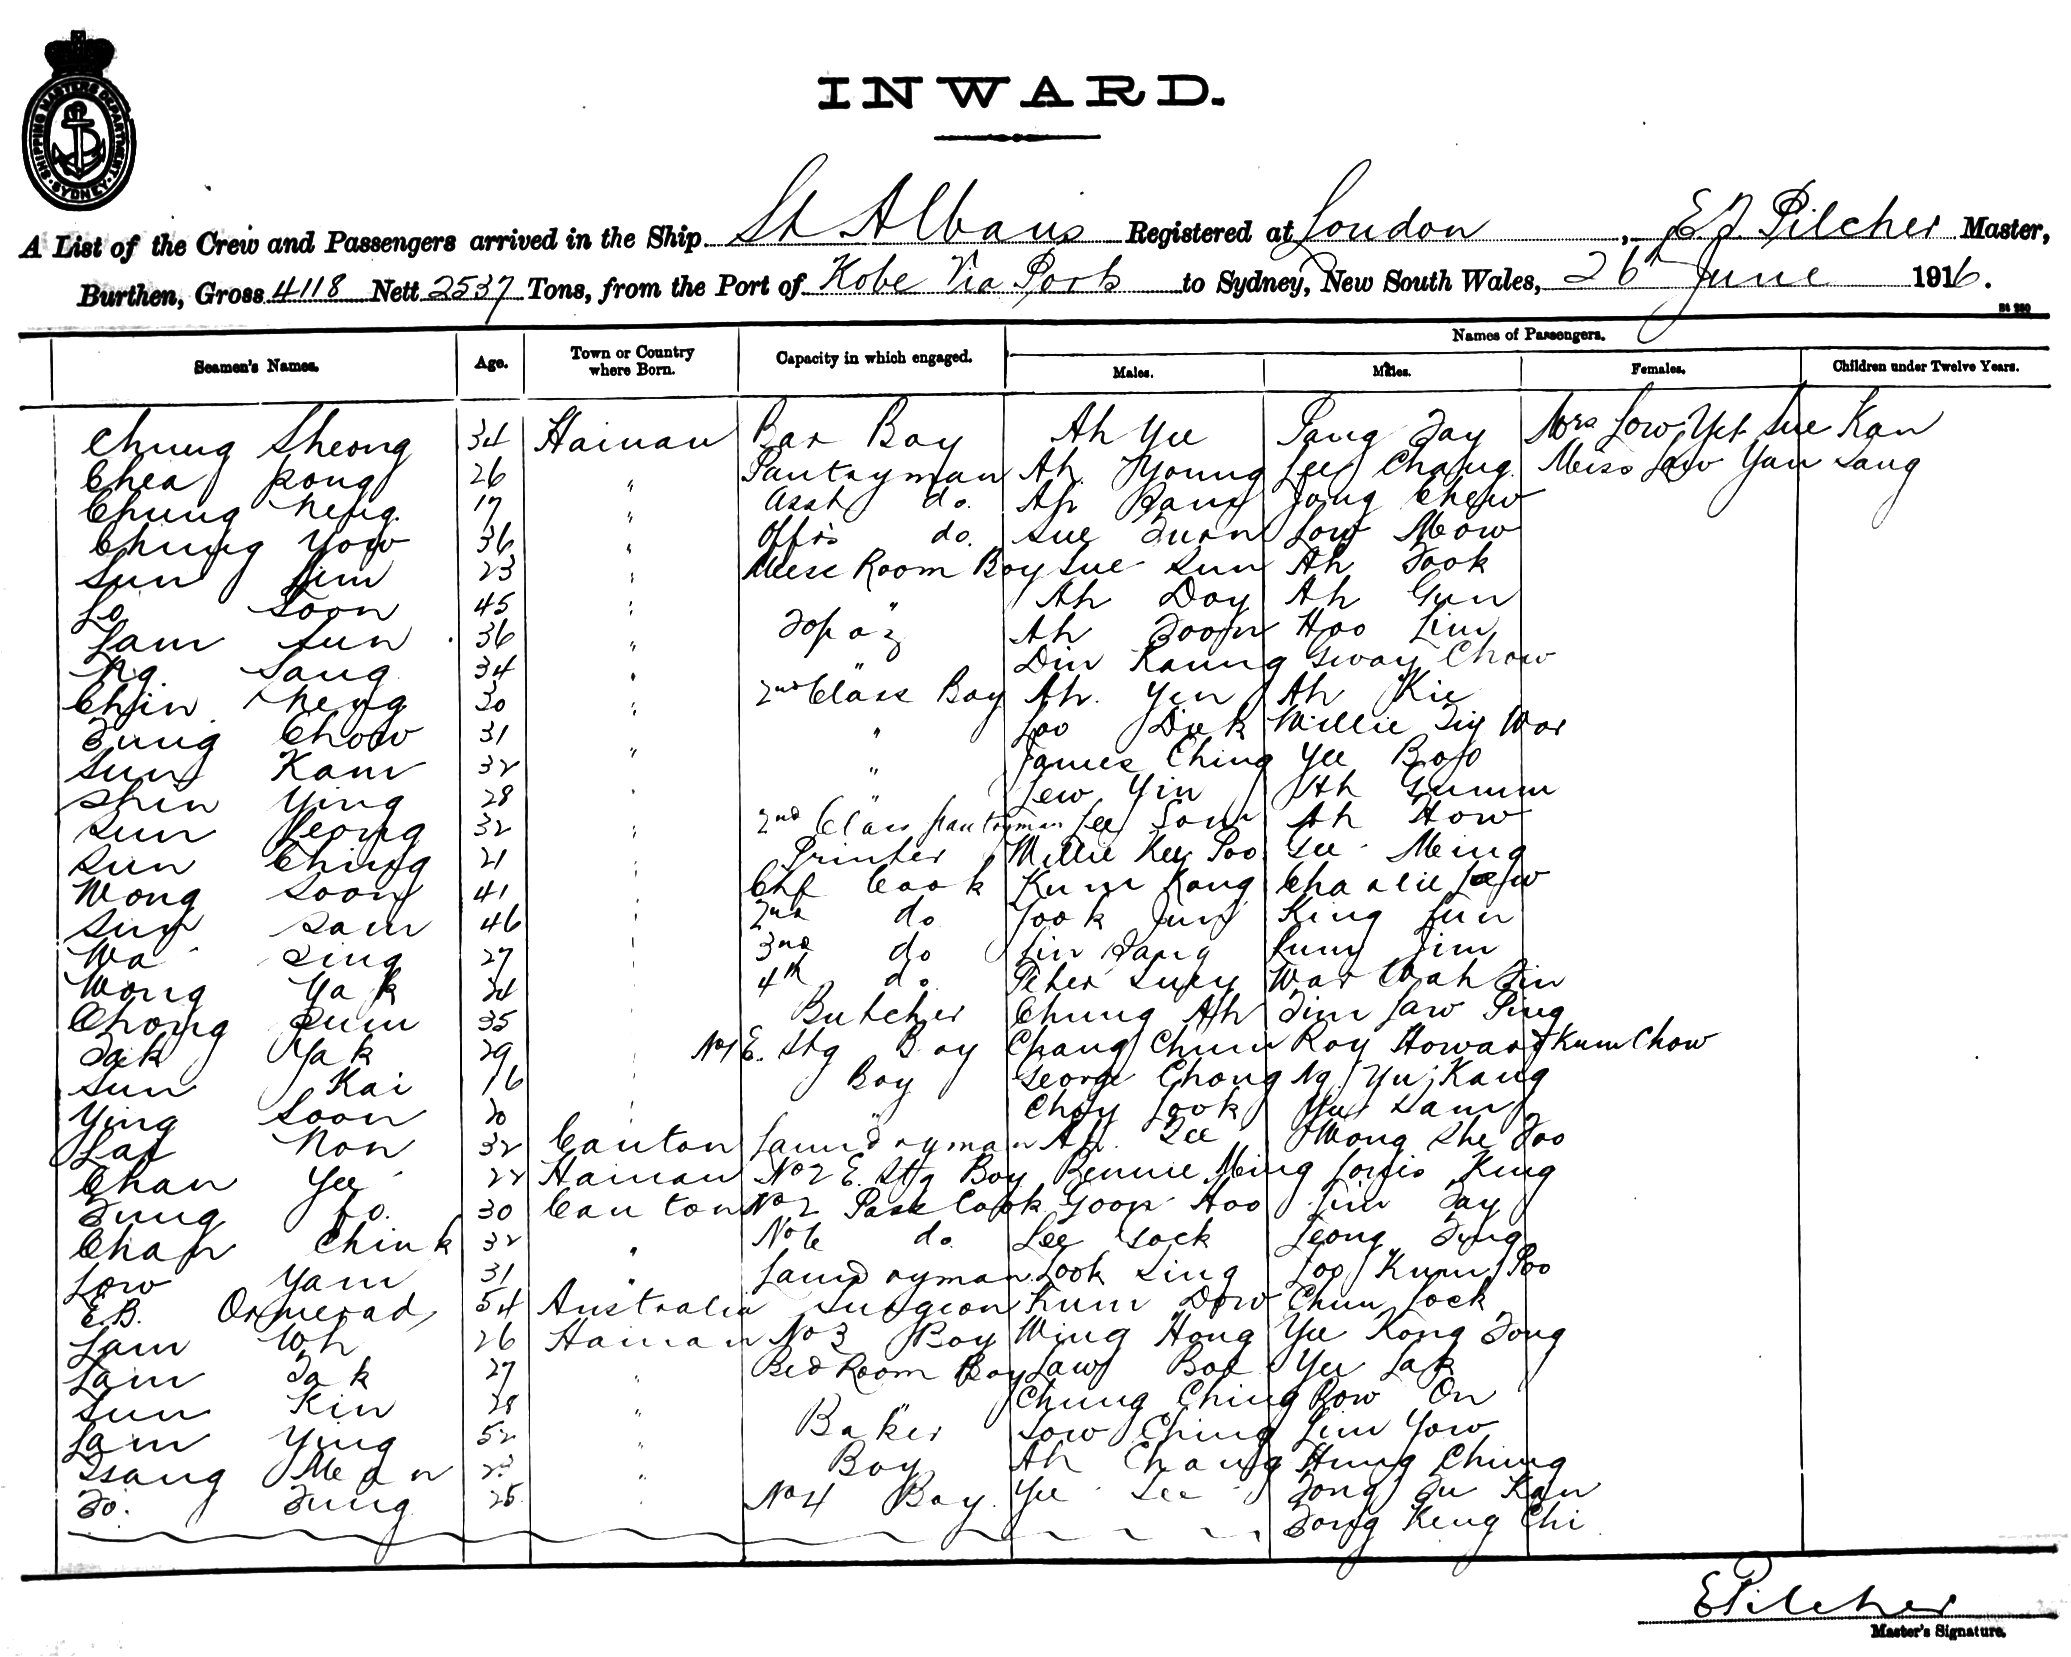 SHIPPING MASTERS DEPARTMENT SYDNEY
INWARD.
A List of the Crew and Passengers arrived in the Ship St Albans Registered at London, E J Pilcher Master,
Burthen, Gross 4118 Nett 2537 Tons, from the Port of Kobe Via Ports to Sydney, New South Wales, 26th June 1916.
Names of Passengers.
Seamen's Names. Age. Town or Country where Born. Capacity in which engaged. Males. Males. Females. Children under Twelve Years.
Chung Sheong 34 Hainan Bar Boy Ah Yee Pang Tay Mrs Low Yet Sue Kan
Chea Kong 26 " Pantryman Ah Young Lee Chang Miss Law Yan Sang
Chung Neng 17 " Asst do. Ah Bang Jong Chew
Chung Yow 36 " Offrs do. Sue Tuan Low Meow
Sun Jim 23 " Mess Room Boy Sue Sun Ah Took
Lo Soon 45 " " Ah Doy Ah Gun
Lam Sun 36 " Topaz Ah Toon Hoo Lim
Ng Sang 34 " " Din Kaung Gway Chow
Chin Kheng 30 " 2nd Class Boy Ah Yen Ah Kie
Tung Chow 31 " " Loo Duk Willie Tig War
Sun Kam 32 " " James Ching Yee Bojo
Shin Ying 28 " " Lew Yin Ah Gumm
Sun Leong 32 " 2nd Class Pantryman Lee Son Ah How
Sun Ching 21 " Printer Willie Kee Poo Gee Meing
Wong Soon 41 " Chf Cook Kum Kong Charlie Law
Sun Sam 46 " 2nd do Yook Jun King Fun
Wa Sing 27 " 3rd do Lin Tang Lum Jim
Wong Yak 24 " 4th do. Peter Suey War Wah Tin
Chong Sum 35 " Butcher Chung Ah Tim Law Ping
Tak Yak 29 " No 1 E. Stg Boy Chang Chun Roy Howard Kum Chow
Sun Kai 16 " Boy George Chong Ng Yu Kang
Ying Soon 20 " " Choy Look Yue Sam
Lai Non 32 Canton Laundryman Ah. Lee Wong She Too
Chan Yee 22 Hainan No 2 E. Stg Boy Bennie Ming Louis King
Tung Fo. 30 Canton No 2 Pass Cook Yoon Hoo Lim Tay
Chan Chink 32 " No 6 do. Lee Sock Leong Tung
Low Yam 31 " Laundryman Look Sing Loo Kum Poo
E.B. Ormerod 54 Australia Surgeon Kum Dow Chun Lock
Lam Wh 26 Hainan No 3 Boy Wing Hong Yee Kong Tong
Lam Tak 27 " Bed Room Boy Law Bor Yee Lak
Sun Kin 28 " " Chung Ching Row On
Lam Ying 52 " Baker Low Ching Lim Yow
Tsang Mean 23 " Boy Ah Chang Hung Ching
To. Tung 25 " No 4 Boy. Yee Lee Tong Tu Kan
Tong Keng Chi
E Pilcher
Master's Signature.